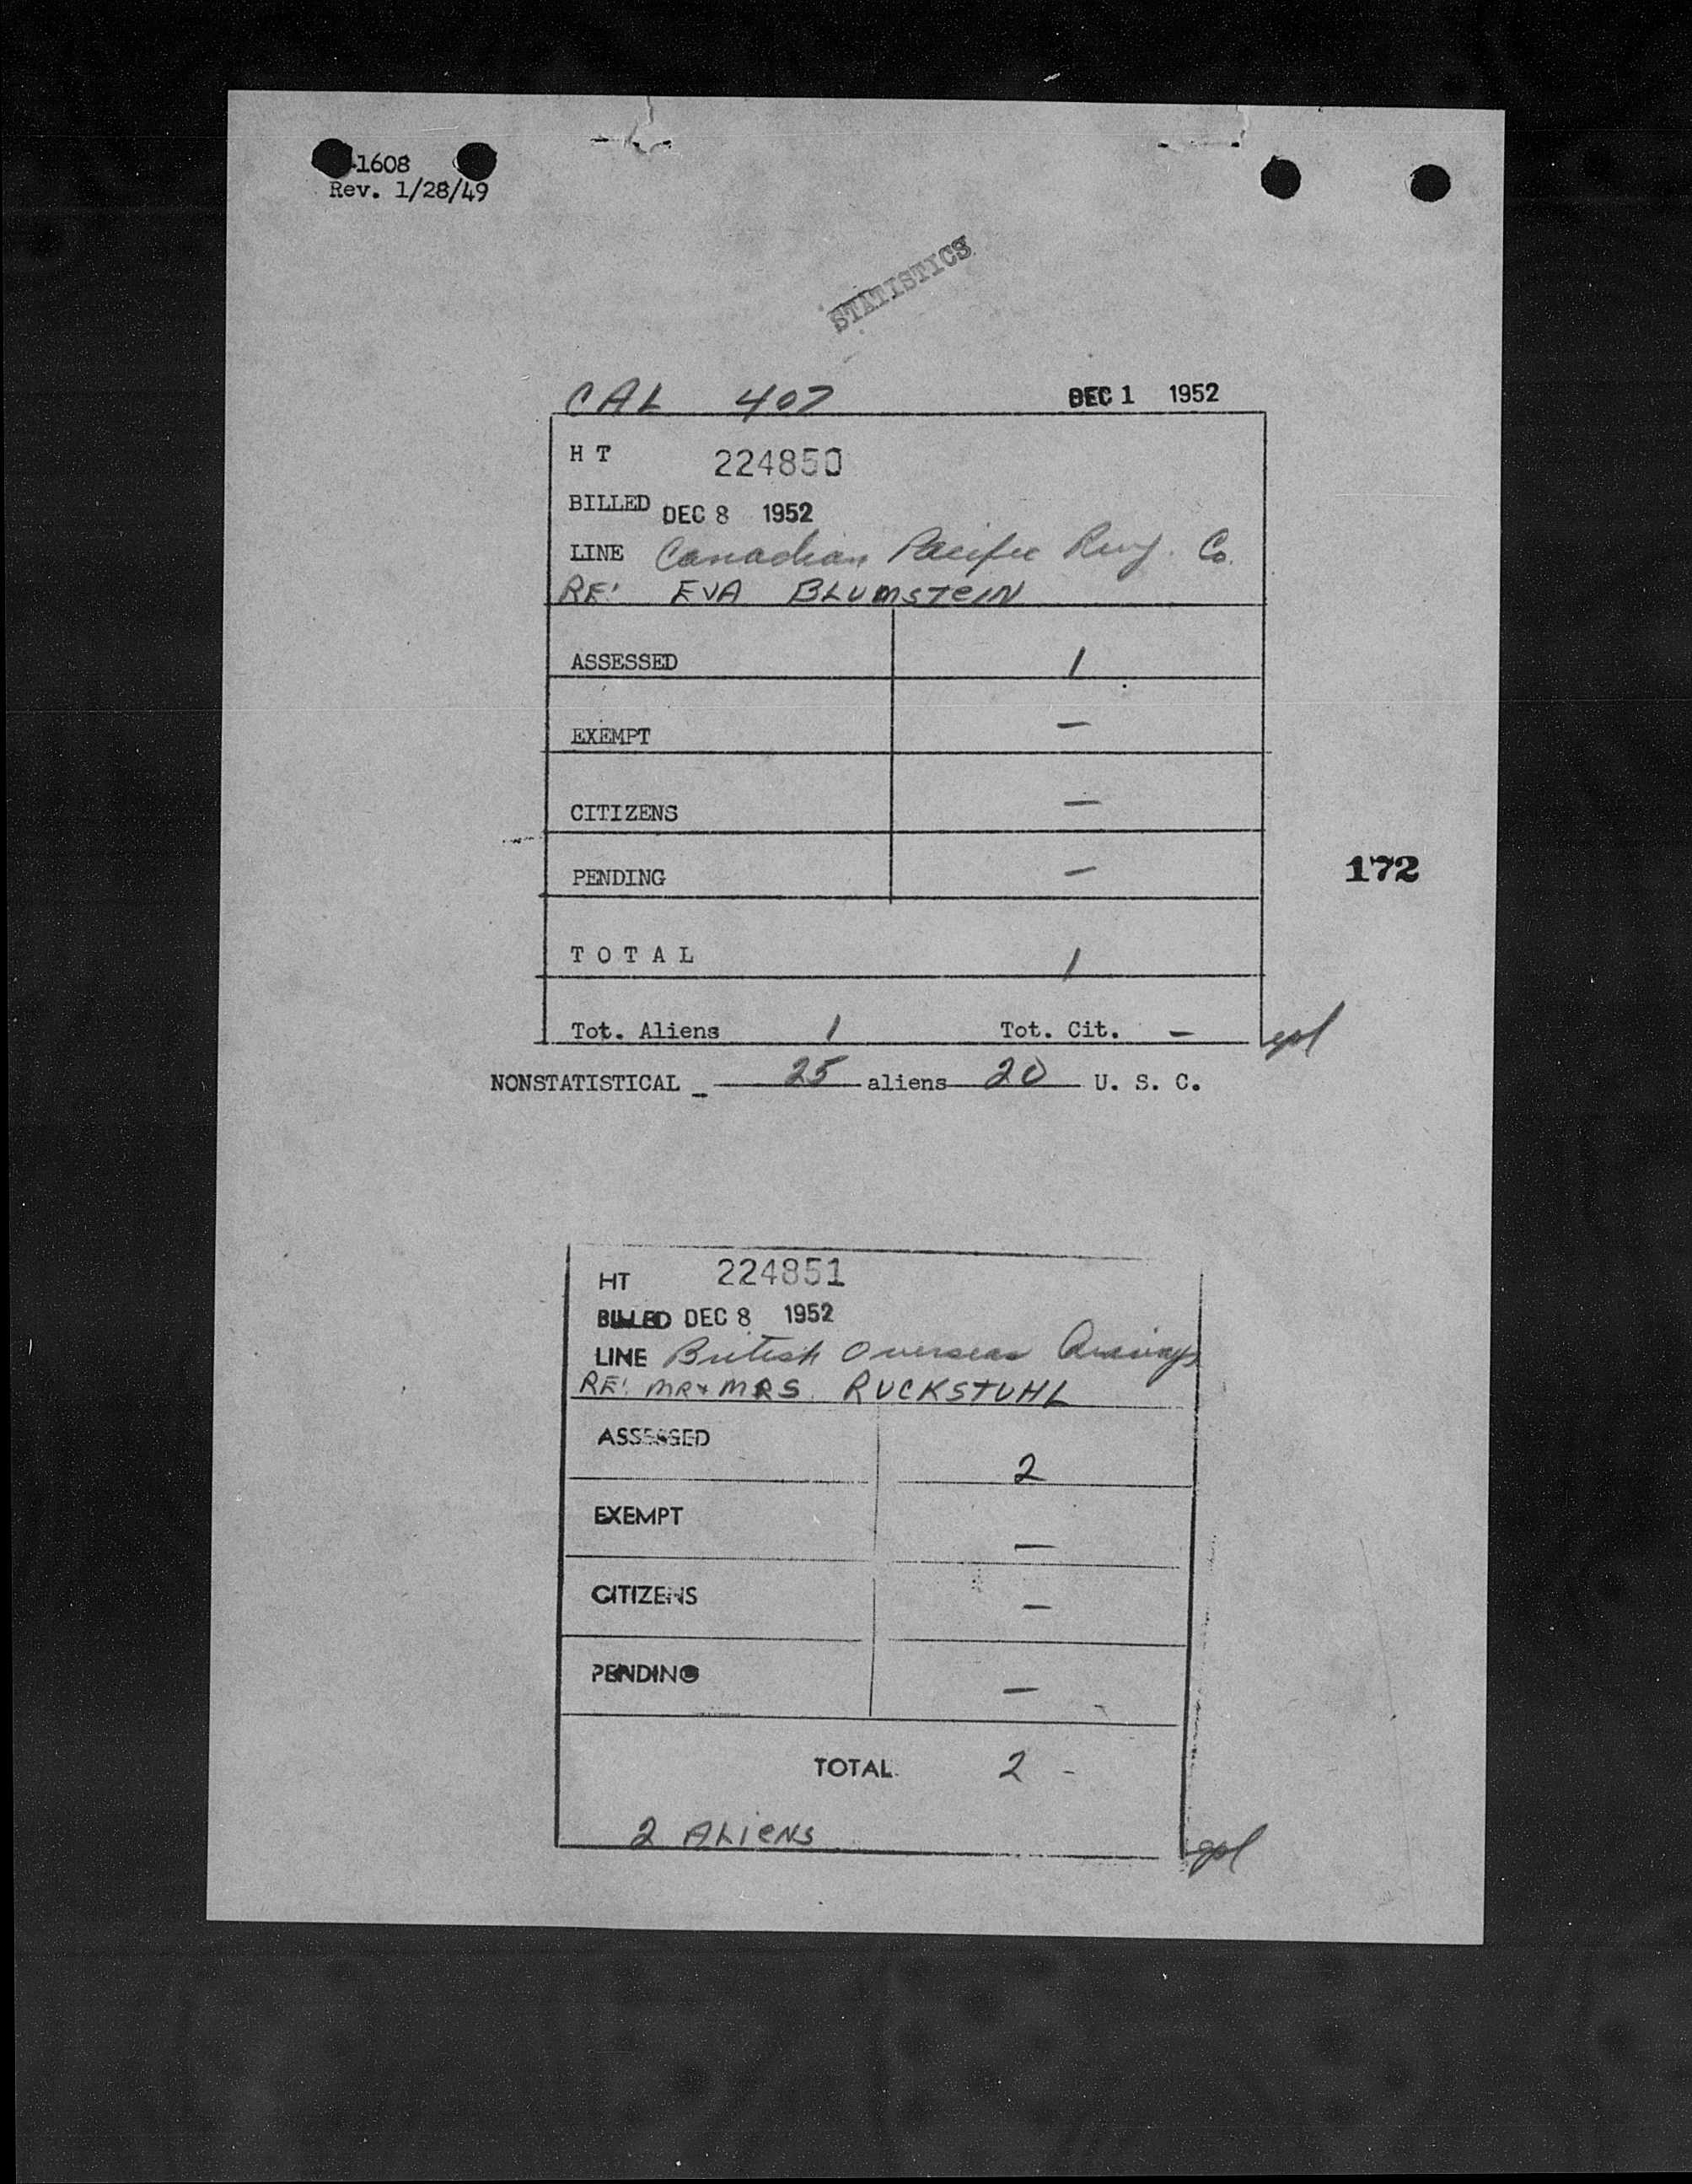 -1608
Rev. 1/28/49
STATISTICS
CAL 407 DEC 1 1952
H T 224850
BILLED DEC 8 1952
LINE Canadian Pacific Rwy. Co.
RE: EVA BLUMSTEIN
ASSESSED 1
EXEMPT —
CITIZENS —
PENDING —
172
T O T A L 1
Tot. Aliens 1 Tot. Cit. —
NONSTATISTICAL _ 25 aliens 20 U. S. C.
HT 224851
BILLED DEC 8 1952
LINE British Overseas Airways
RE: MR + MRS. RUCKSTUHL
ASSESSED 2
EXEMPT —
CITIZENS —
PENDING —
TOTAL 2 -
2 ALIENS